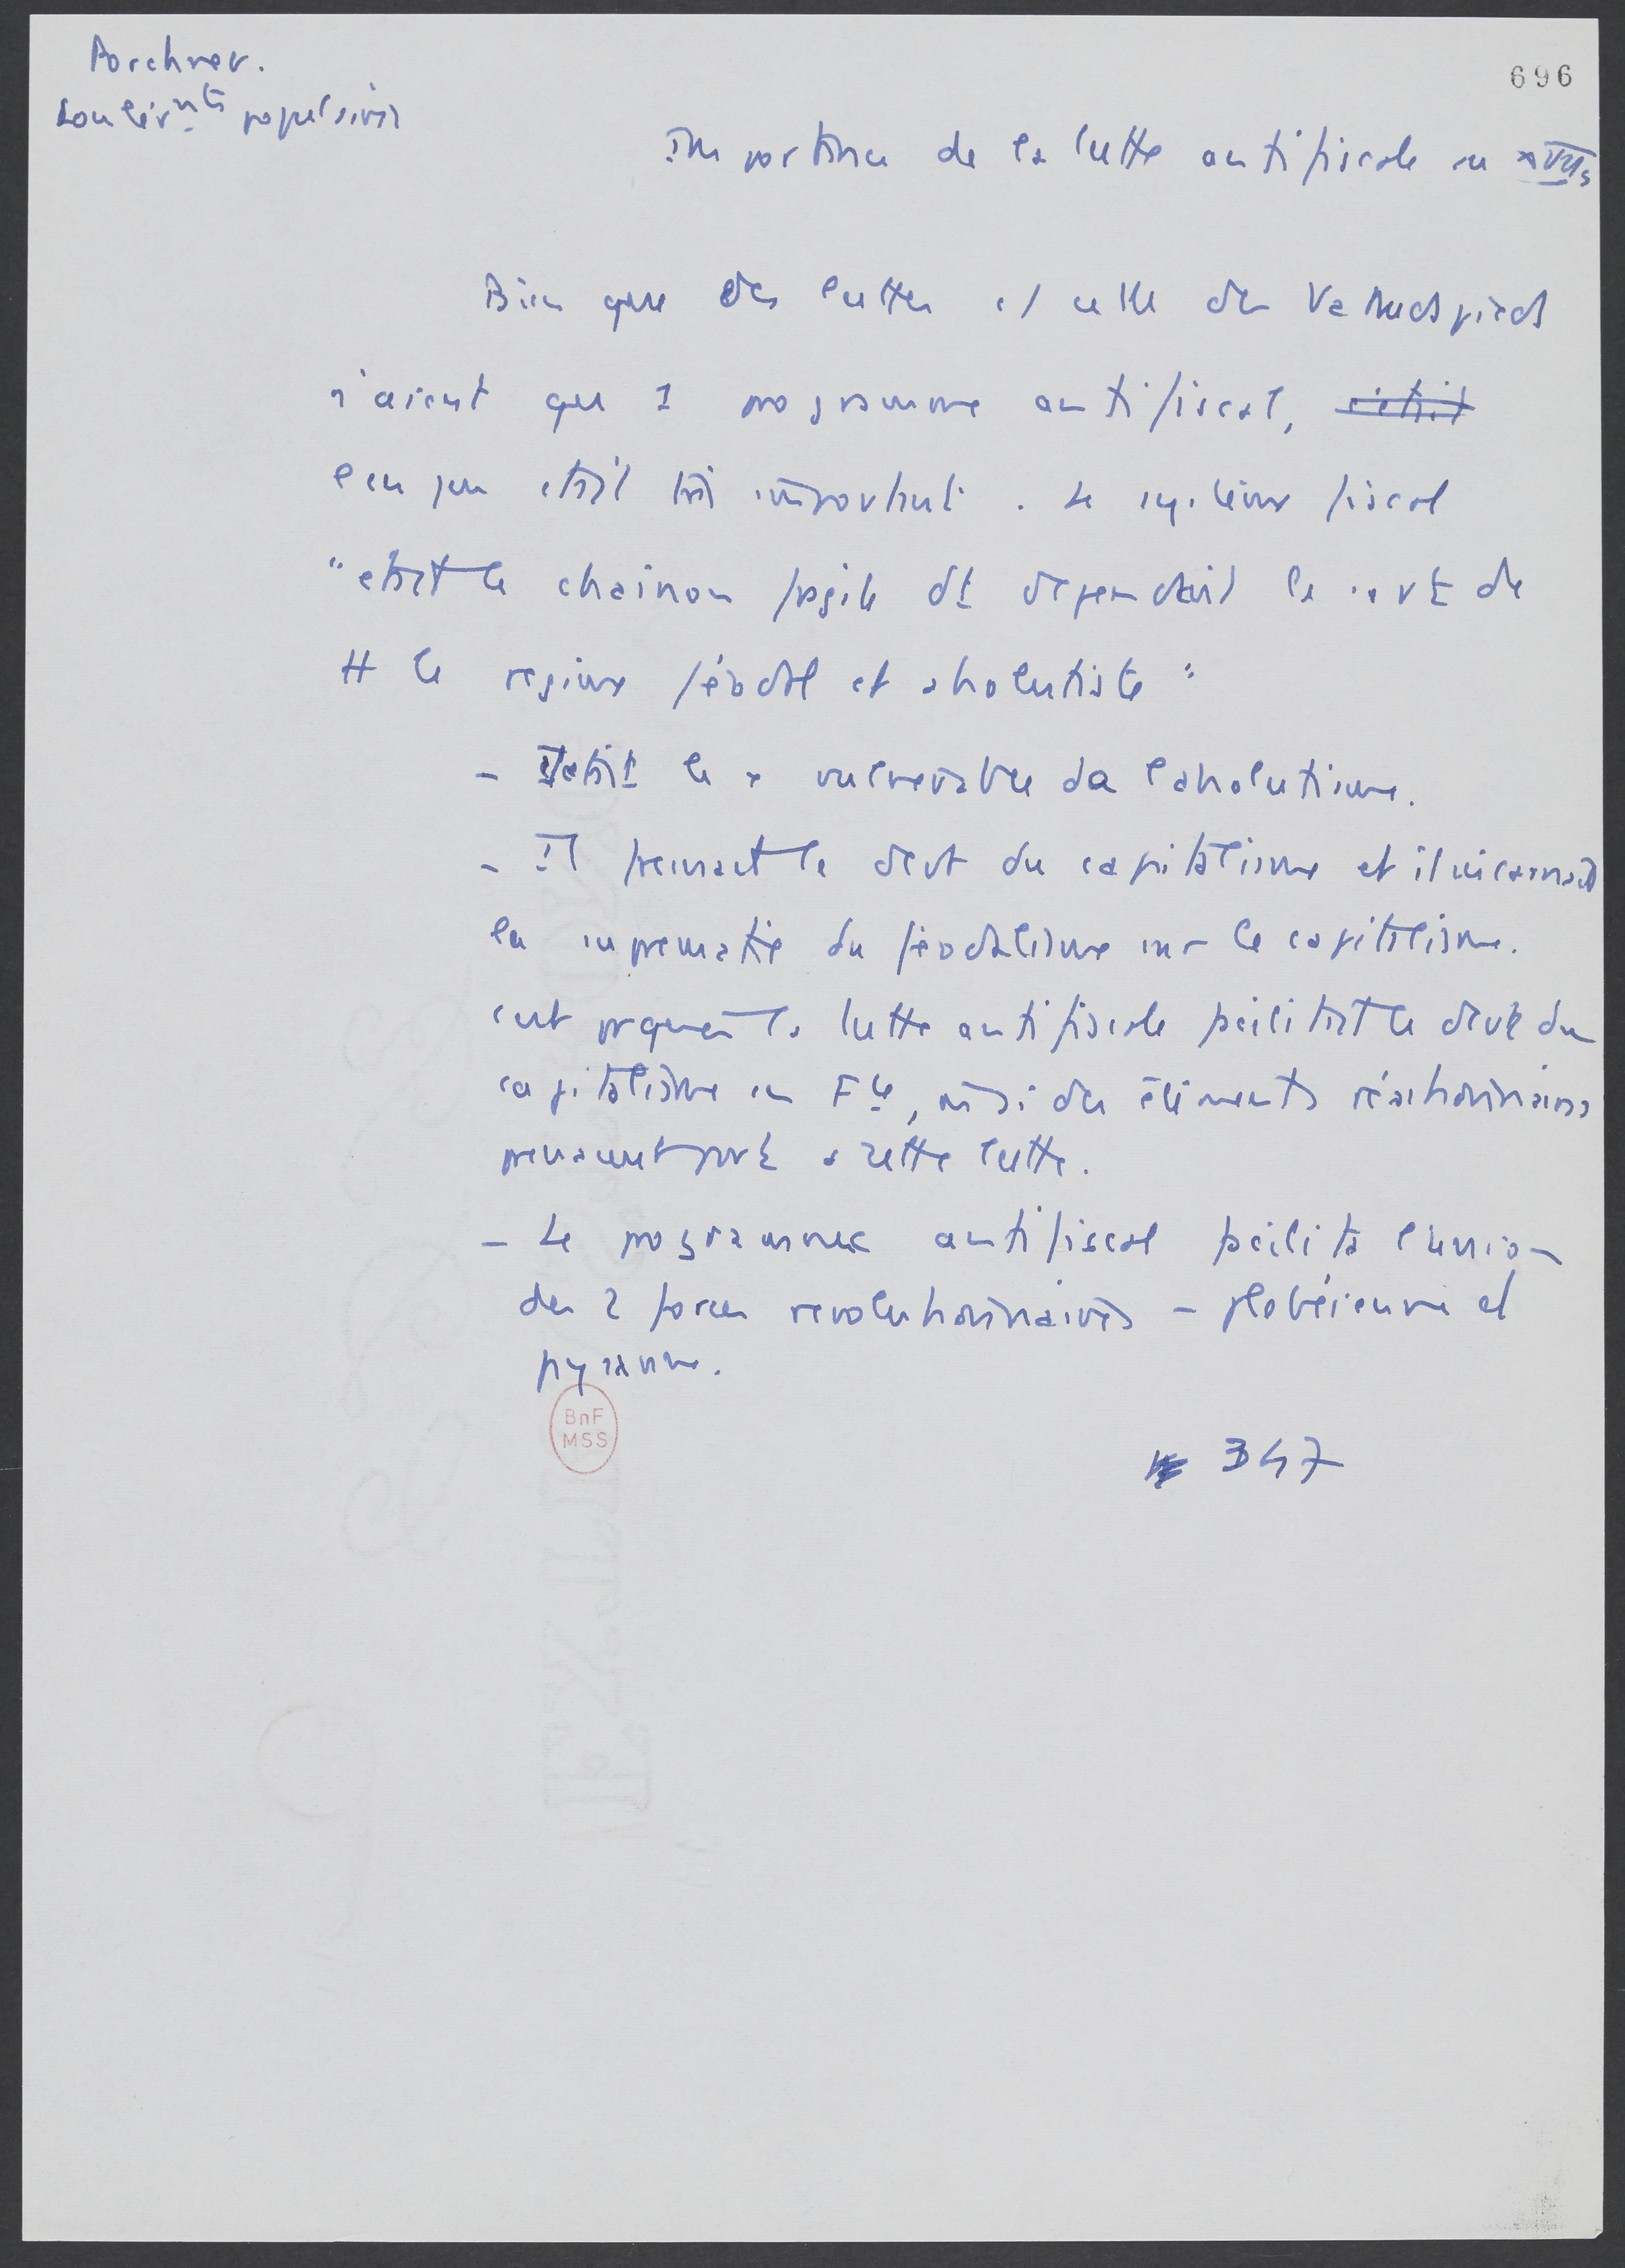 Porchnev.
Soulèv.nts populaires
696
Importance de la lutte antifiscale au XVIIs
Bien que des luttes c/ celle des Va nuds pieds
n'aient que 1 programme antifiscal, c'était
leur était très important. Le système fiscal
"etait le chainon fragile dt dependait le sort de
tt le regime féodal et absolutiste"
- Il etait le + vulnerable da l'absolutisme.
- Il freinait le devt du capitalisme et il incarnait
la suprematie du féodalisme sur le capitalisme.
c'est pquoi la lutte antifiscale facilitait le devt du
capitalisme en Fce, même si des éléments réactionnaires
prenaient part a cette lutte.
- Le programme antifiscal facilita l'union
des 2 forces revolutionnaires - plebéienne et
paysanne.
BnF
MSS
347